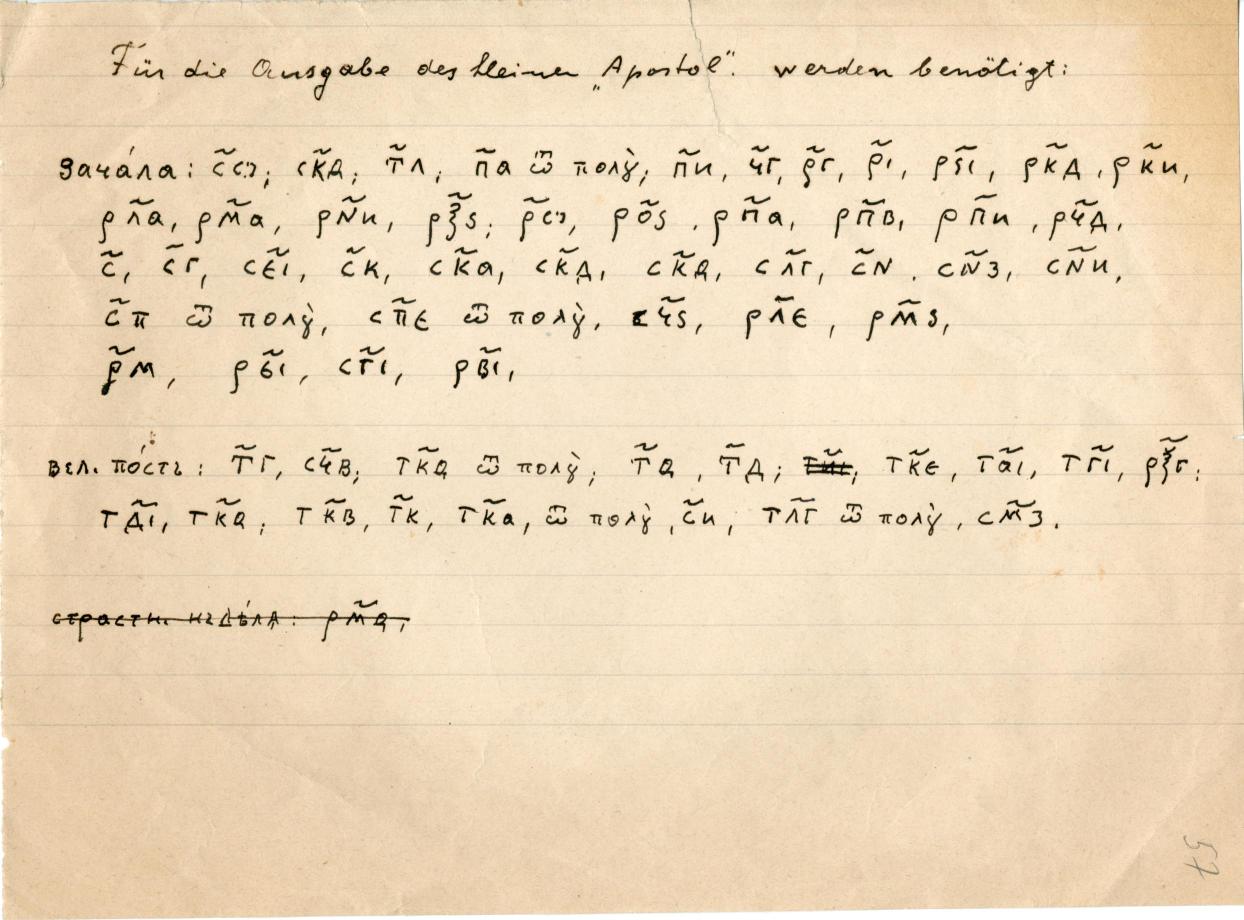 Für die Ausgabe des kleinen „Apostol". werden benötigt:
Зача́ла: с҃ѻ; ск҃ѳ; т҃л; п҃а ѿ полꙋ̀; п҃и, ч҃г, р҃г, р҃і, рѕ҃і, рк҃д, рк҃и,
рл҃а, рм҃а, рн҃и, рѯ҃ѕ; р҃ѻ, ро҃ѕ, рп҃а, рп҃в, рп҃и, рч҃д,
с҃, с҃г, сє҃і, с҃к, ск҃а, ск҃д, ск҃ѳ, сл҃г, с҃н, сн҃з, сн҃и,
с҃п ѿ полꙋ̀, сп҃є ѿ полꙋ̀, сч҃ѕ, рл҃є, рм҃ѕ,
р҃м, рѕ҃і, сг҃і, рв҃і,
вел. по́стъ: т҃г, сч҃в; тк҃ѳ ѿ полꙋ̀; т҃ѳ, т҃д; тк҃є, та҃і, тг҃і, рѯ҃г;
тд҃і, тк҃ѳ; тк҃в, т҃к, тк҃а, ѿ полꙋ̀, с҃и, тл҃г ѿ полꙋ̀, см҃з.
страстн. недѣ́лѧ: рм҃ѳ,
57